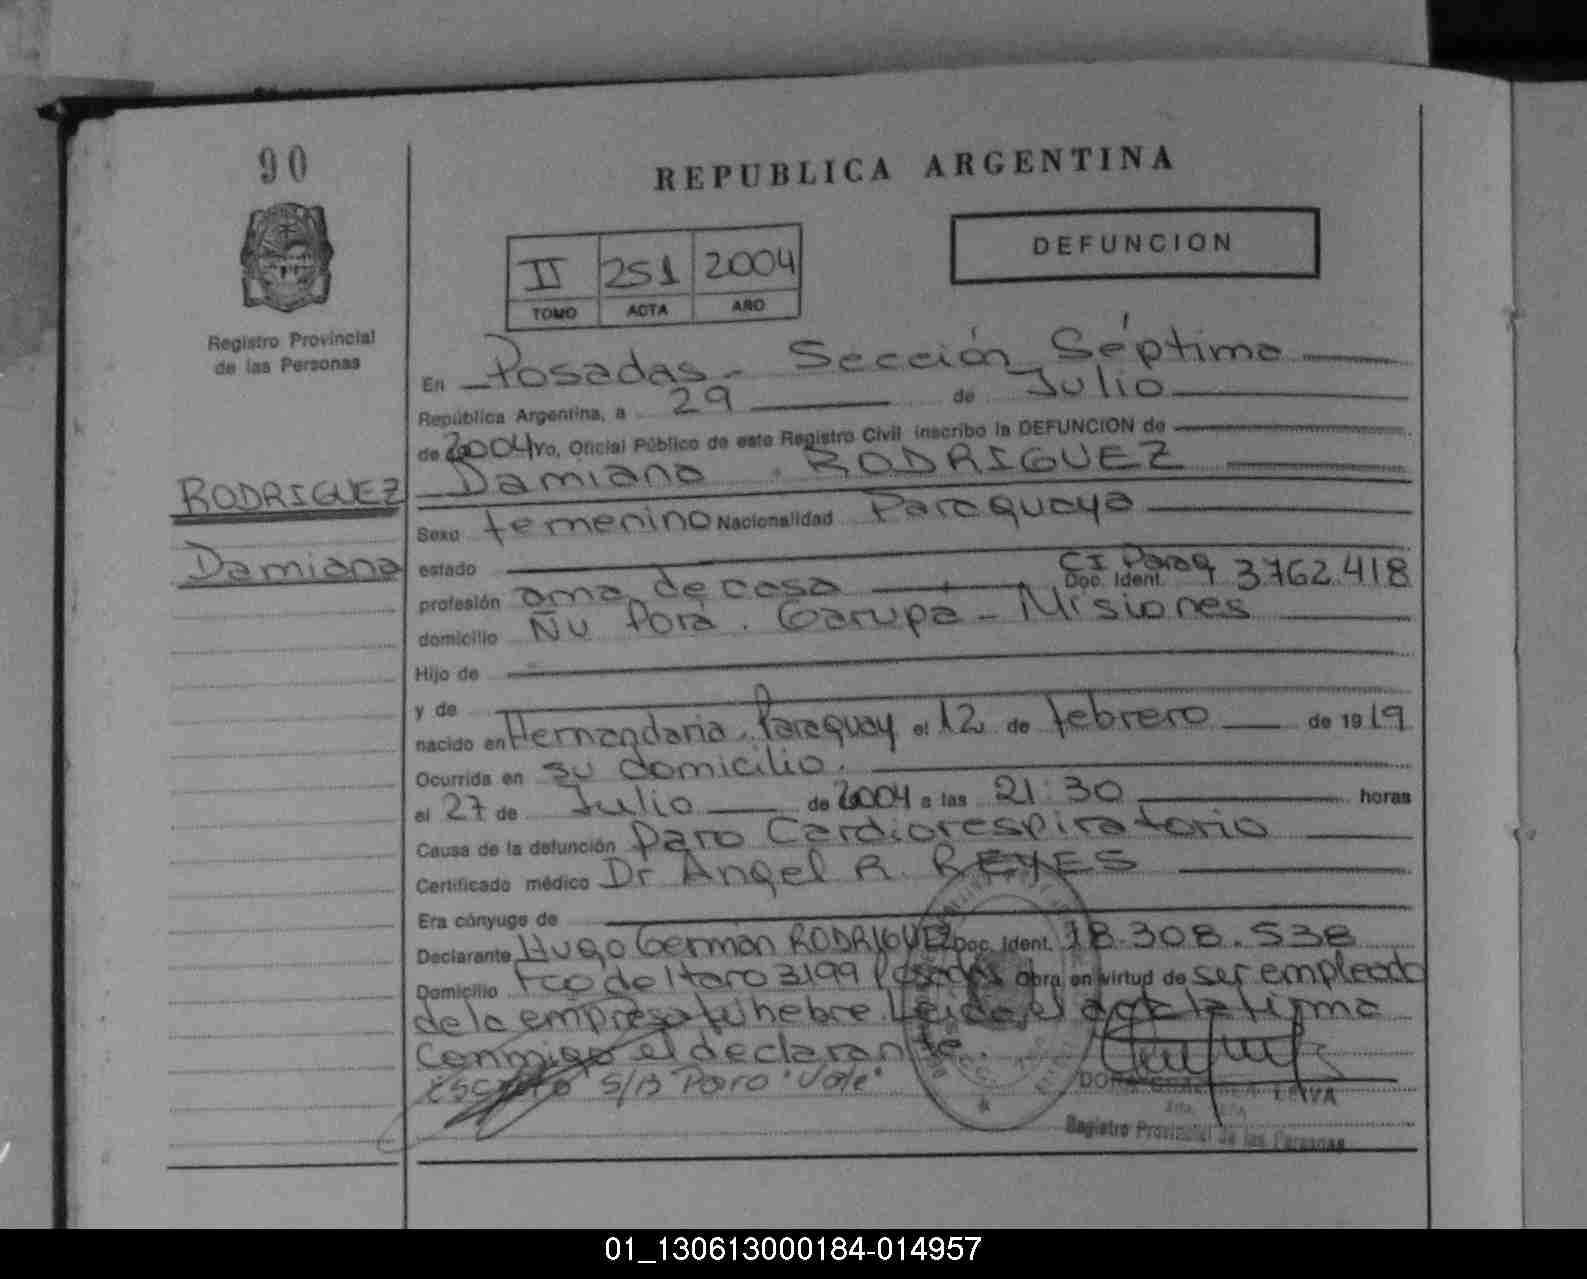 90
REPUBLICA ARGENTINA
DEFUNCION
II 251 2004
TOMO ACTA AÑO
Registro Provincial
de las Personas
En Posadas - Sección Séptima
República Argentina, a 29 de Julio
de 2004 yo, Oficial Público de este Registro Civil inscribo la DEFUNCION de
RODRIGUEZ
Damiana RODRIGUEZ
Sexo femenino Nacionalidad Paraguaya
Damiana
estado
CI Parag
profesión ama de casa Doc. Ident. 3762.418
domicilio Ñu Porá. Garupa - Misiones
Hijo de
y de
nacido en Hernandaria. Paraguay el 12 de febrero de 1919
Ocurrida en su domicilio.
el 27 de Julio de 2004 a las 21:30 horas
Causa de la defunción Paro Cardiorespiratorio
Certificado médico Dr Angel R. REYES
Era cónyuge de
Declarante Hugo Germán RODRIGUEZ Doc. Ident. 18.308.538
Domicilio Fco de Haro 3199 Posadas obra en virtud de ser empleado
de la empresa fúnebre. Leida el acta la firma
conmigo el declarante.
S/B Paro "Vale"
LEIVA
Registro Provincial de las Personas
01_130613000184-014957